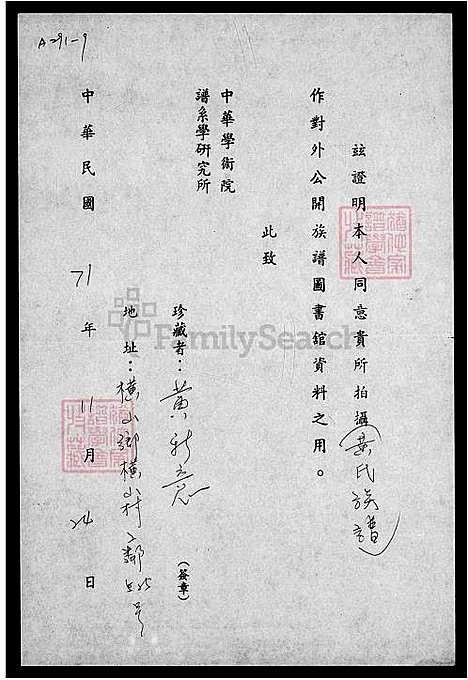 A291-9
茲證明本人同意貴所拍攝(黃氏族譜)
作對外公開族譜圖書舘資料之用。
此致
中華學術院
譜系學研究所
珍藏者：黃新意
(簽章)
地址：橫山鄉橫山村2鄰
號
中華民國71年11月24日
FamilySearch